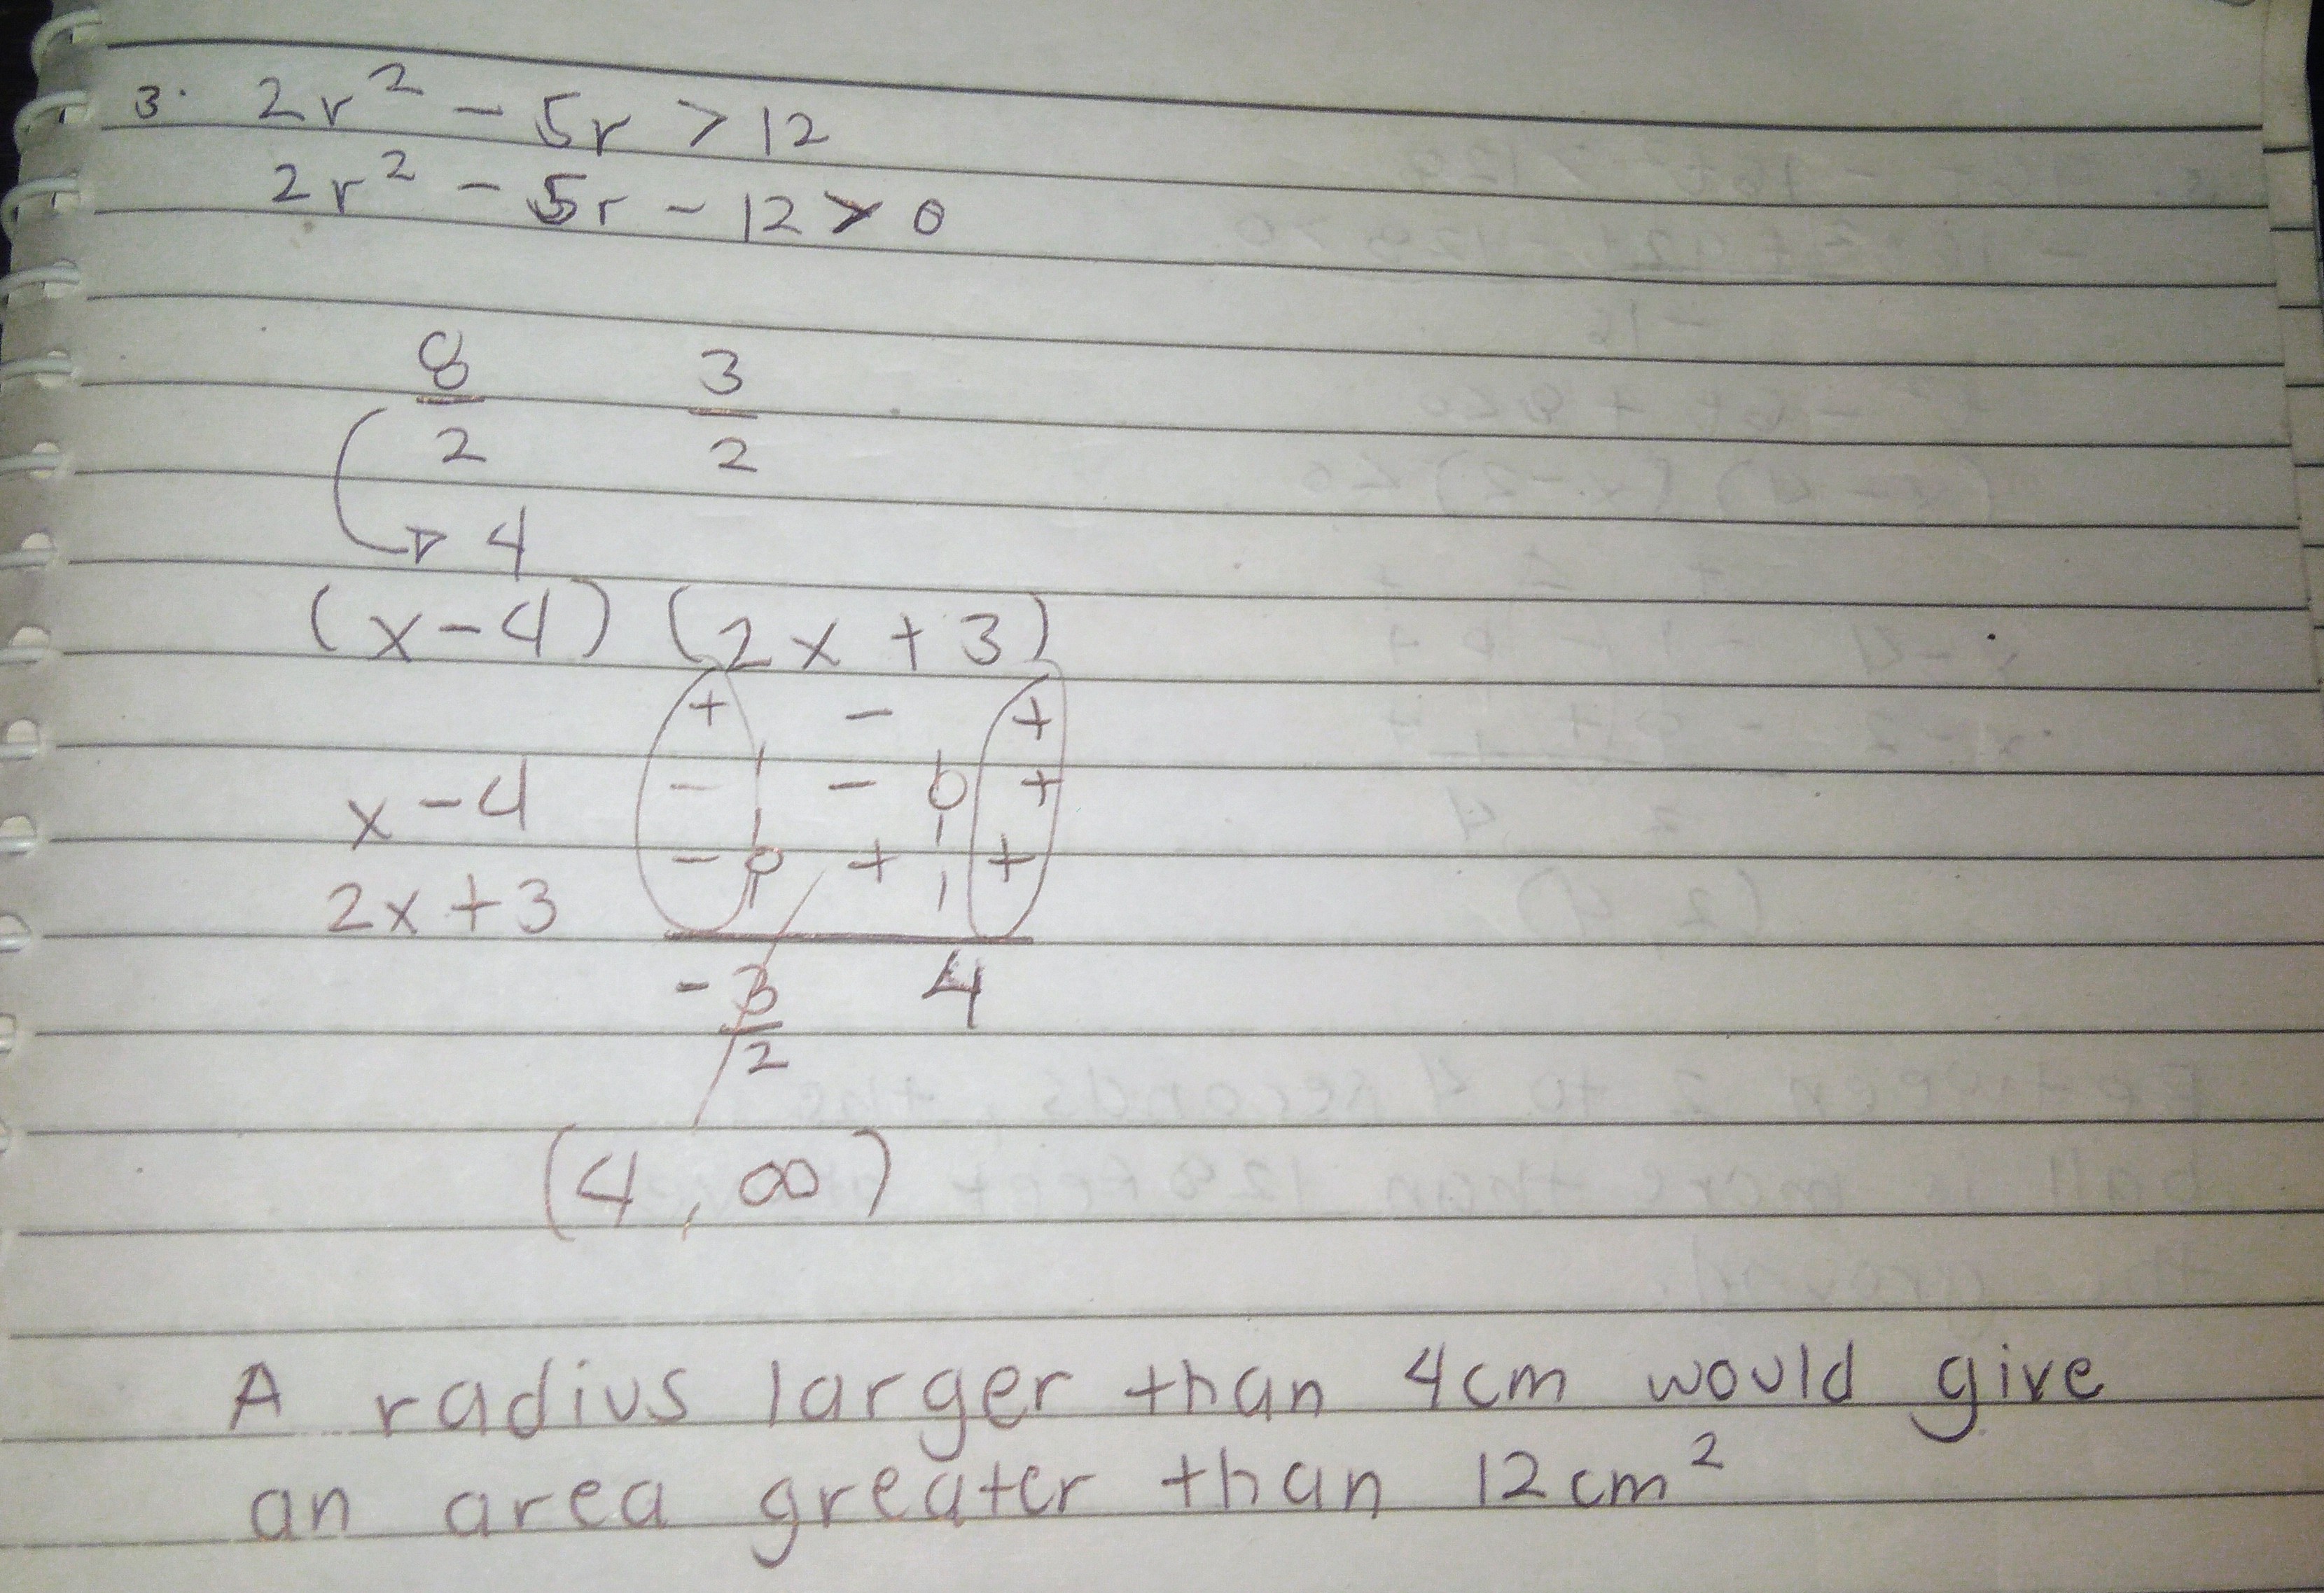 3. 2r² - 5r > 12
2r² - 5r - 12 > 0
8/2 3/2
→ 4
(x-4) (2x+3)
+ - +
x-4 - - 0 +
2x+3 - 0 + +
-3/2 4
(4, ∞)
A radius larger than 4cm would give
an area greater than 12cm²